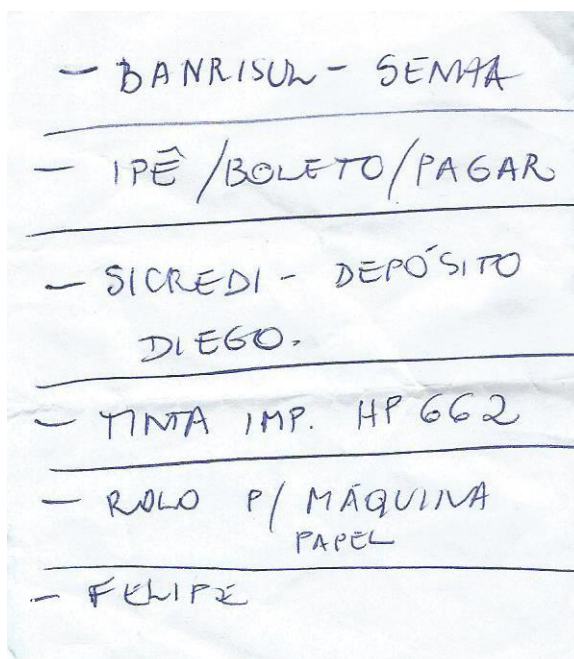 - BANRISUL - SENHA
- IPÊ /BOLETO/PAGAR
- SICREDI - DEPÓSITO
DIEGO.
- TINTA IMP. HP 662
- ROLO P/ MÁQUINA
PAPEL
- FELIPE